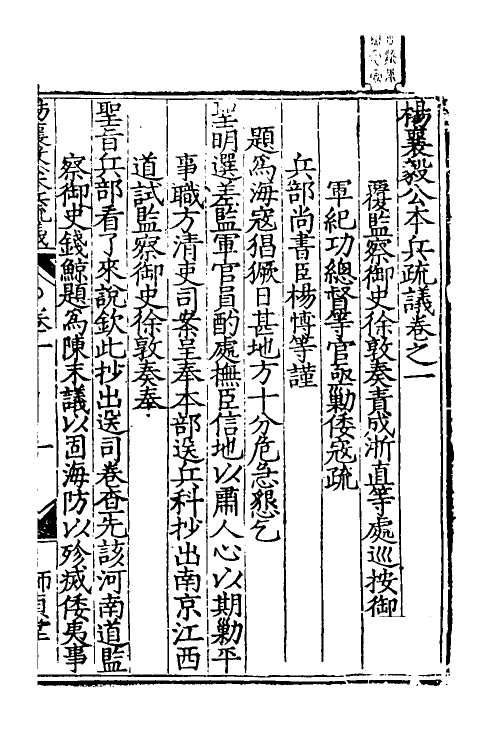 楊襄毅公本兵疏議卷之一
覆監察御史徐敦奏責成浙直等處巡按御
軍紀功總督等官亟勦倭寇疏
兵部尚書臣楊愽等謹
題爲海寇猖獗日甚地方十分危急懇乞
聖明選差監軍官員酌處撫臣信地以肅人心以期勦平
事職方清吏司案呈奉本部送兵科抄出南京江西
道試監察御史徐敦奏奉
聖旨兵部看了來說欽此抄出送司卷查先該河南道監
察御史錢鯨題爲陳末議以固海防以殄滅倭夷事
師貞堂